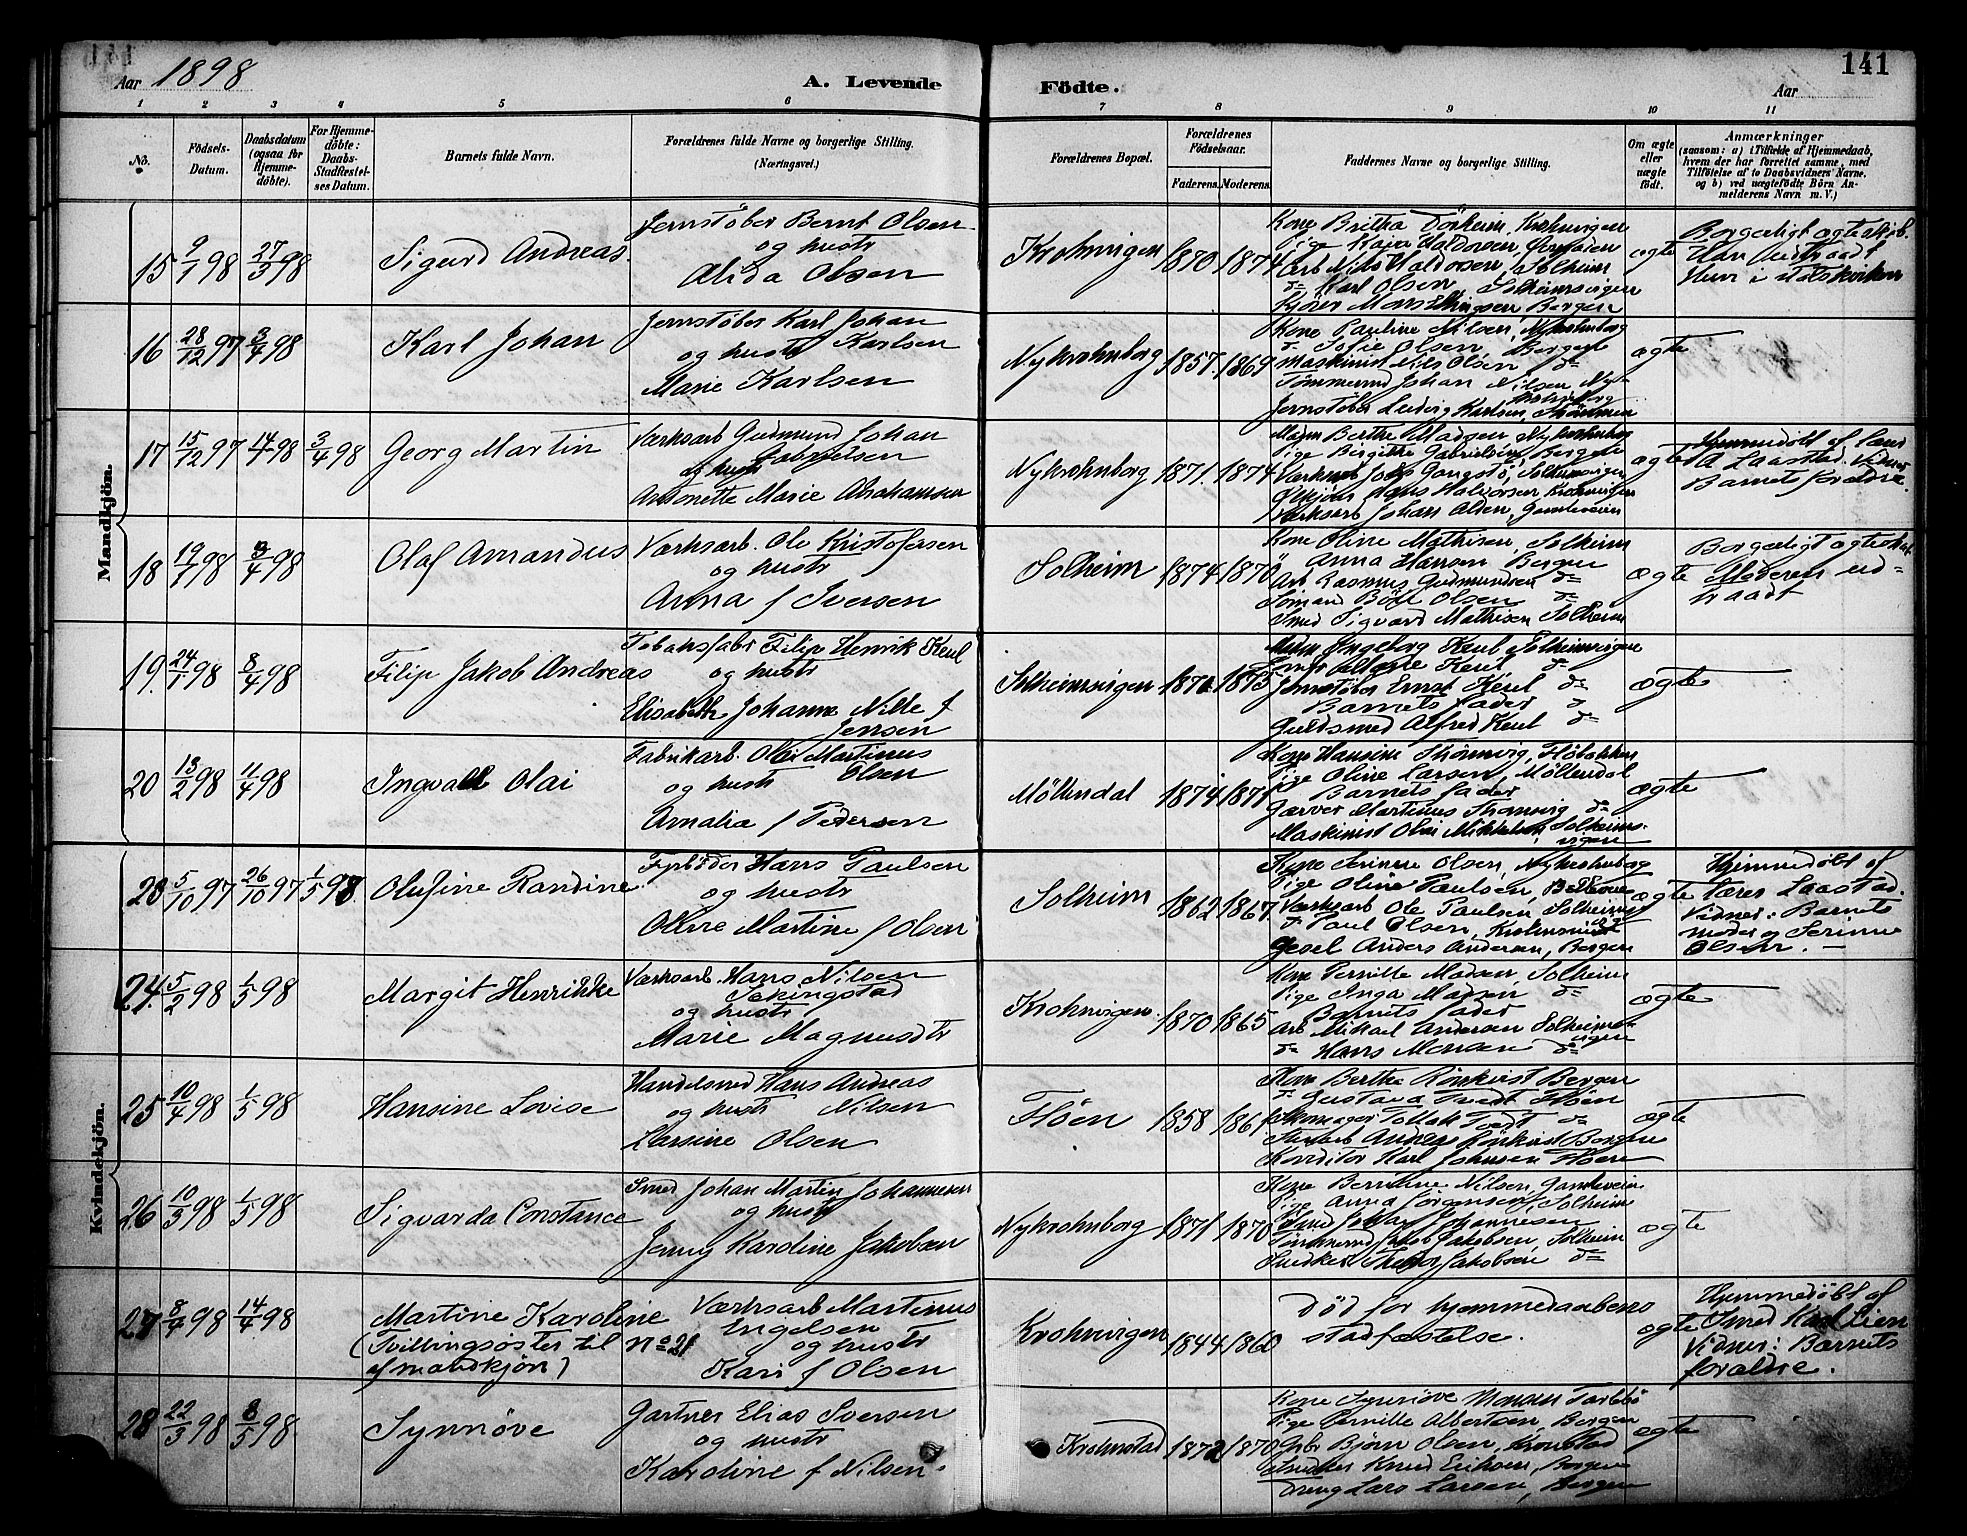 Aar 1898
A. Levende
Födte.
141
Aar
1 2 3 4 5 6 7 8 9 10 11
No.
Födsels-Datum.
Daabsdatum (ogsaa for Hjemme-döbte).
For Hjemme-döbte: Daabs-Stadfæstel-ses Datum.
Barnets fulde Navn.
Forældrenes fulde Navne og borgerlige Stilling. (Næringsvei.)
Forældrenes Bopæl.
Forældrenes Födselsaar.
Faderens. Moderens.
Faddernes Navne og borgerlige Stilling.
Om ægte eller uægte födt.
Anmærkninger
(saasom: a) i Tilfælde af Hjemmedaab, hvem der har forrettet samme, med Tilföielse af to Daabsvidners Navne, og b) ved uægtefödte Börn An-melderens Navn m. V.)
Mandkjön.
15 9/1 98 27/3 98 Sigurd Andreas
Jernstöber Bernt Olsen
og hustr
Alida Olsen
Krohnvigen 1870 1874
Kone Britha Dönheim, Krohnvigen
Pige Kaja Haldorsen,
Arb Nils Haldorsen, Solheim
do Karl Olsen, Solheimsvigen
Bergen
ægte
Borgerligt ægteskab.
Han Udtraadt
Hun i statskirken
16 28/12 97 3/4 98 Karl Johan
Jernstöber Karl Johan
og hustr Karlsen
Marie Karlsen
Nykrohnborg 1857 1869
Kone Pauline Nilsen, Nykrohnborg
do Sofie Olsen, Bergen
Maskinist Nils Olsen do
Tömmermd Johan Nilsen, Ny-
krohnborg
Jernstöber Ludvig Karlsen,
ægte
17 15/12 97 14/1 98 3/4 98 Georg Martin
Værksarb Gudmund Johan
og hustr Gabrielsen
Antonette Marie Abrahamsen
Nykrohnborg 1871 1874
Madm Berthe Madsen, Nykrohnborg
Pige Bergitte Gabrielsen, Bergen
Værksarb Solheimsvigen
Hans Halvorsen Krohnvigen
Værksarb Johan Olsen, Gamleveien
ægte
Hjemmedöbt af Lærer
A Laastad. Vidner
Barnets forældre.
18 19/1 98 3/4 98 Olaf Amandus
Værksarb. Ole Kristofersen
og hustr
Anna f Iversen
Solheim 1874 1870
Kone Oline Mathisen, Solheim
Anna Hansen Bergen
Arb Rasmus Gudmundsen do
Sömand Olsen do
Smed Sigvard Mathisen Solheim
ægte
Borgerligt ægteskab.
Moderen ud-
traadt
19. 24/1 98 8/4 98 Filip Jakob Andreas
Tobaksfabr Filip Henrik Keul
og hustr
Elisabeth Johanne Nille f
Jensen
Solheimsvigen 1875
Ingeborg Keul Solheimsvigen
Keul do
Jernstöber Ernst Keul do
Barnets fader
Guldsmed Alfred Keul do
ægte
20 13/2 98 11/4 98 Ingvald Olai
Fabrikarb. Olai Martinus
og hustr Olsen
Amalia f Pedersen
Möllendal 1874 1871
Kone Hansine
Pige Oline Larsen, Möllendal
Barnets fader
Garver Martinus do
Maskinist Olai Mikkelsen, Solheims-
vigen
ægte
Kvindekjön.
23 5/10 97 26/10 97 1/5 98 Olufine Randine
Fyrböder Hans Paulsen
og hustr
Oline Martine f Olsen
Solheim 1862 1867
Kone Serine Olsen, Nykrohnborg
Pige Oline Paulsen,
Værksarb Ole Paulsen, Solheimsvig
do Paul Olsen, Krohnsminde
Gesel Anders Andersen, Bergen
ægte
Hjemmedöbt af
Lærer Laastad.
Vidner: Barnets
moder og Serine
Olsen.
24. 5/2 98 1/5 98 Margit Henrikke
Værksarb. Hans Nilsen
Sekingstad
og hustr
Marie Magnusdtr
Krohnvigen. 1870 1865
Kone Pernille Madsen, Solheim
Pige Inga Madsen do
Barnets fader
Arb Mikael Andersen Solheims-
vigen
do Hans Monsen do
ægte
25 10/4 98 1/5 98 Hansine Lovise
Handelsmd Hans Andreas
og hustr Nilsen
Hansine Olsen
Flöen 1858 1861
Kone Berthe Rönkvist Bergen
do Gustava Tvedt Flöen
Skomager Tollak Tvedt do
Andreas Rönkvist Bergen
Konditor Karl Johnsen Flöen
ægte
26 10/3 98 1/5 98 Sigvarda Constance
Smed Johan Martin Johannesen
og hustr
Jenny Karoline Jakobsen
Nykrohnborg 1871 1870
Kone Bernhine Nilsen, Gamleveien
Pige Anna Jörgensen, Solheim
Smed Johannesen
Tömmermd Jakob Jakobsen, Solheim
Snedker Jakobsen do
ægte
27 8/4 98 14/4 98 Martine Karoline
(Tvillingsöster til no 21
af mandkjön)
Værksarb Martinus
Engelsen
og hustr
Kari f Olsen
Krohnvigen 1844 1860
Död for hjemmedaabens
stadfæstelse.
ægte
Hjemmedöbt af
Smed Karl Lien
Vidner: Barnets
forældre.
28 22/3 98 8/5 98 Synnöve
Gartner Elias Iversen
og hustr
Karoline f Nilsen.
Krohnstad 1872 1870
Kone Synnöve Monsen
Pige Pernille Albertsen, Bergen
Björn Olsen, Kronstad
Snedker Knud Eriksen, Bergen
Dreng Lars Larsen, Bergen
ægte